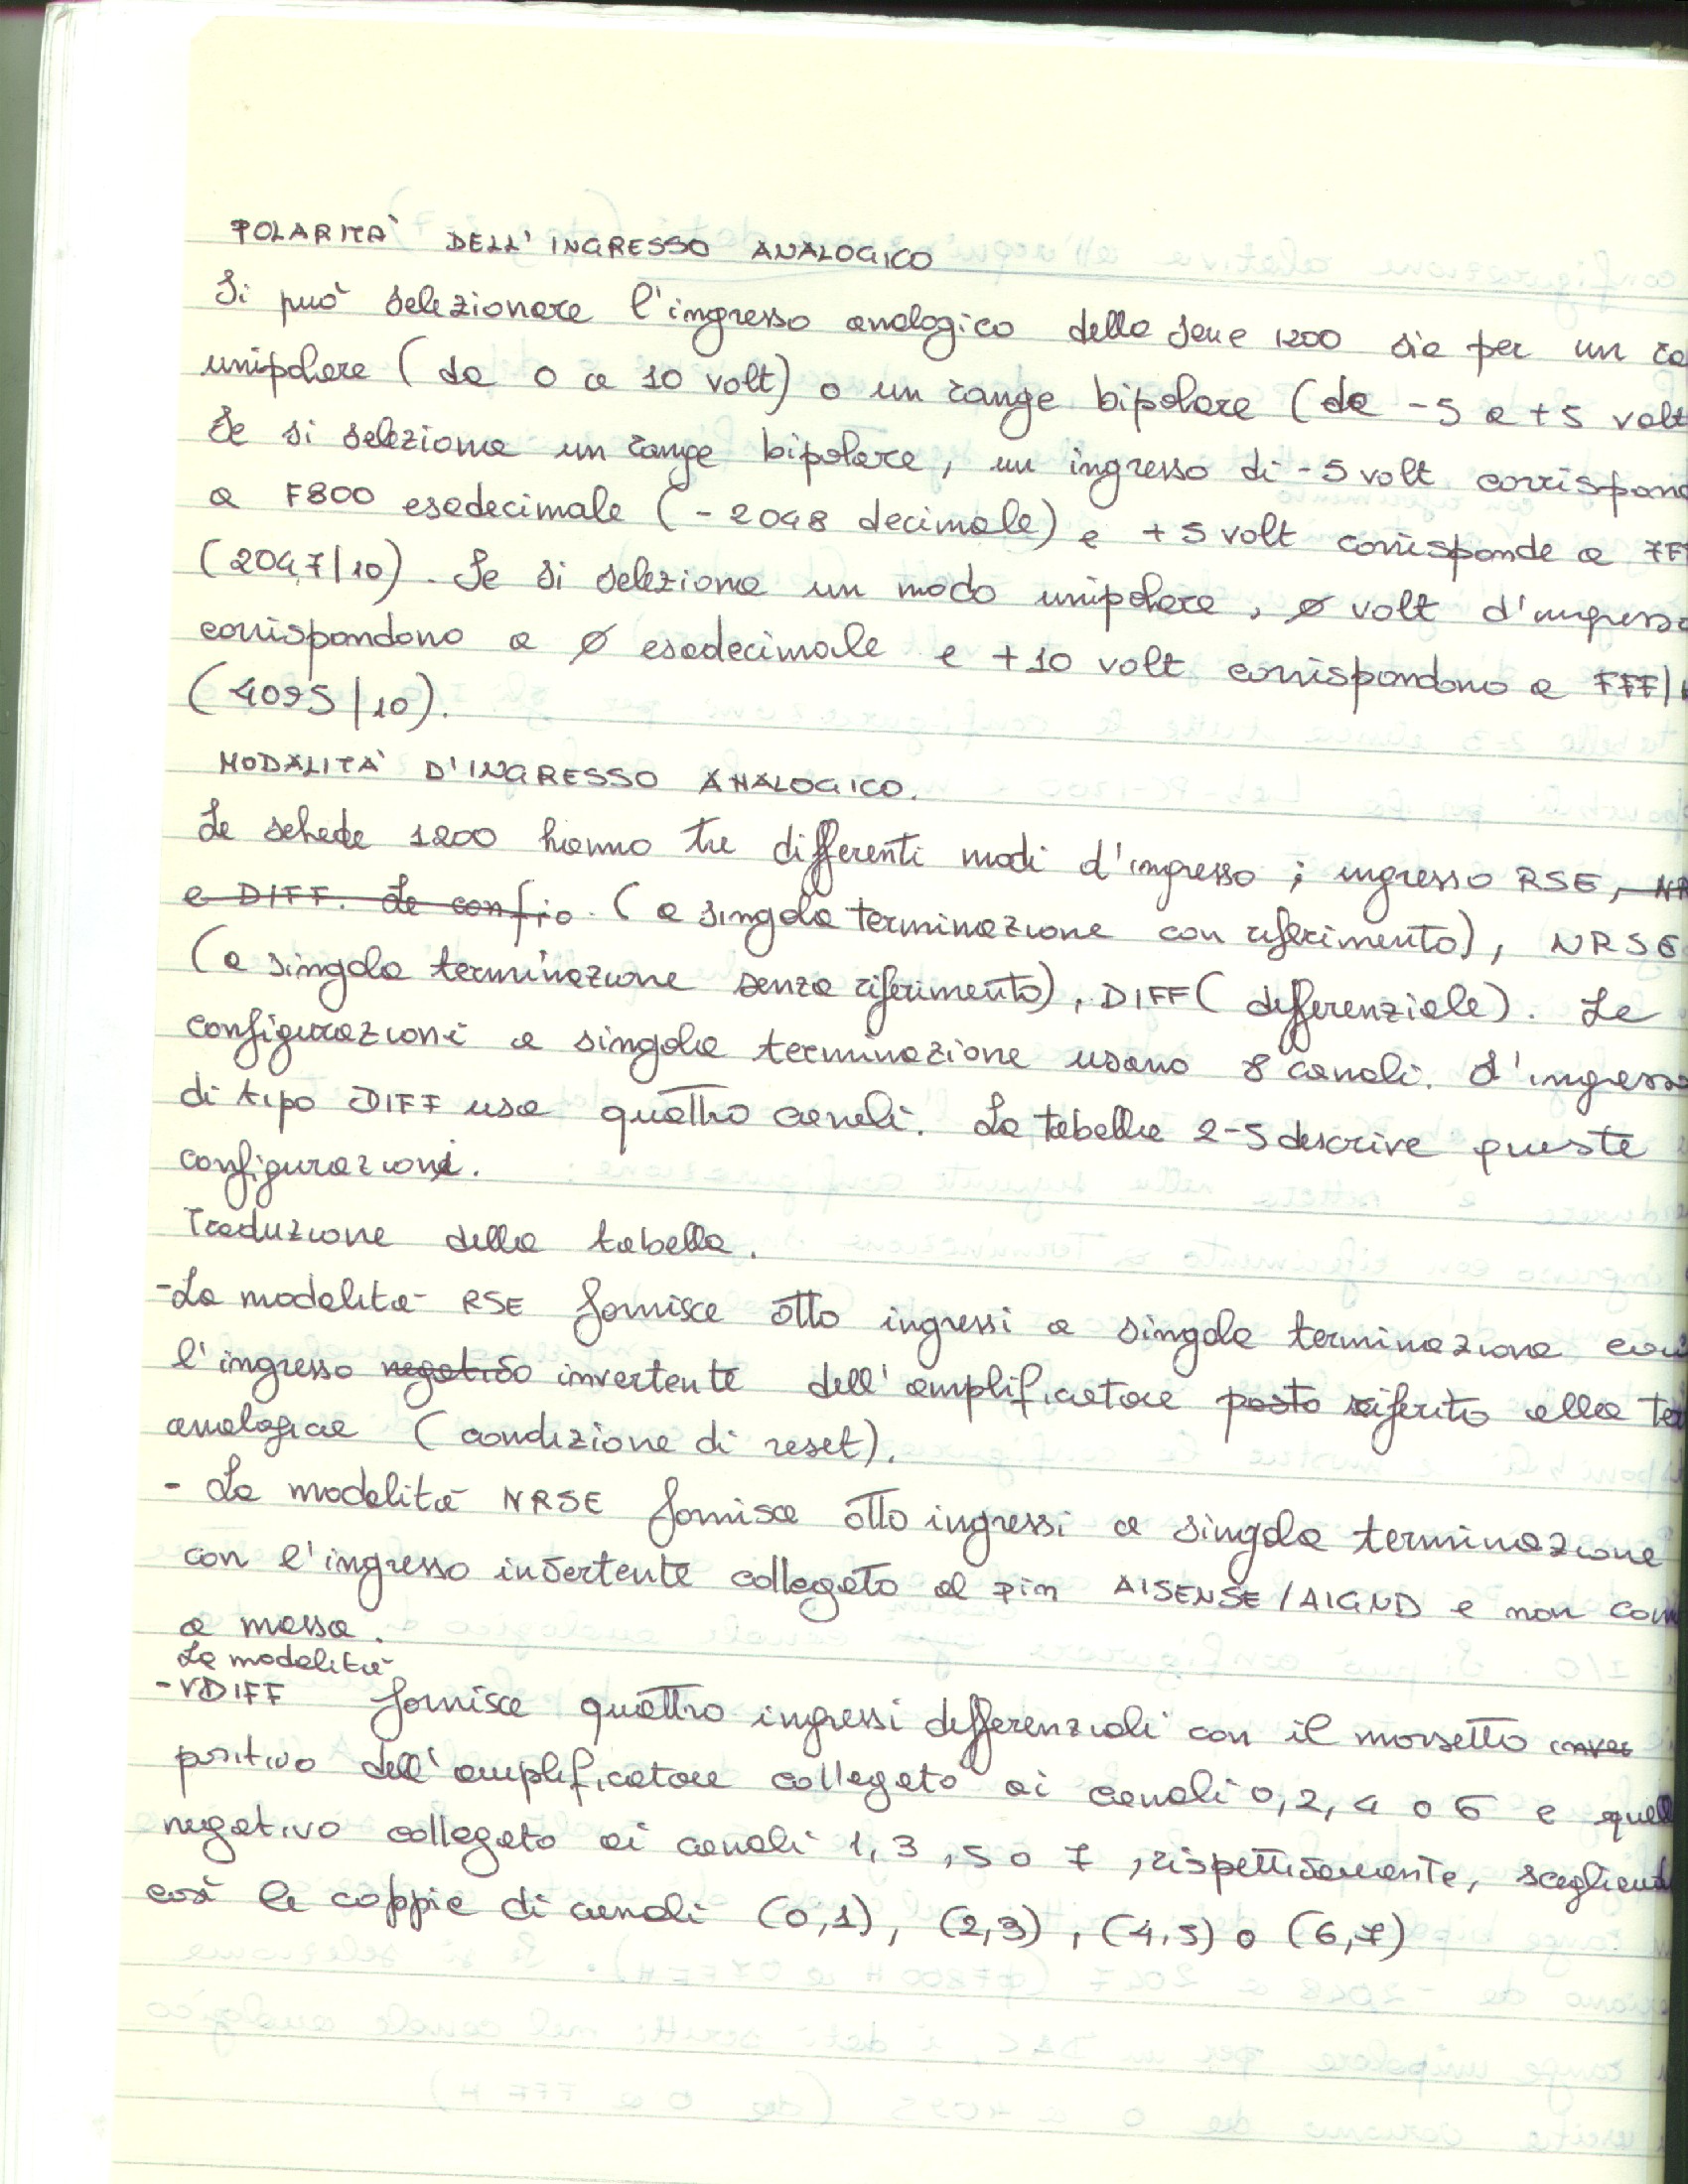 POLARITÀ DELL'INGRESSO ANALOGICO
Si può selezionare l'ingresso analogico della serie 1200 sia per un
unipolare (da 0 a 10 volt) o un range bipolare (da -5 a +5 volt
Se si seleziona un range bipolare, un ingresso di -5 volt corrispond
a F800 esadecimale (-2048 decimale) e +5 volt corrisponde a 7FF
(2047/10). Se si seleziona un modo unipolare, ø volt d'ingresso
corrispondono a ø esadecimale e +10 volt corrispondono a FFF/
(4095/10).
MODALITÀ D'INGRESSO ANALOGICO.
Le schede 1200 hanno tre differenti modi d'ingresso; ingresso RSE, NR
e DIFF. Le confio. (a singola terminazione con riferimento), NRSE
(a singola terminazione senza riferimento), DIFF (differenziale). Le
configurazioni a singola terminazione usano 8 canali. L'ingresso
di tipo DIFF usa quattro canali. La tabella 2-5 descrive queste
configurazioni.
Traduzione della tabella.
-La modalità RSE fornisce otto ingressi a singola terminazione con
l'ingresso negativo invertente dell'amplificatore posto riferito alla
analogica (condizione di reset).
- La modalità NRSE fornisce otto ingressi a singola terminazione
con l'ingresso invertente collegato al pin AISENSE/AIGND e non
a massa.
La modalità
-VDIFF fornisce quattro ingressi differenziali con il morsetto
positivo dell'amplificatore collegato ai canali 0, 2, 4 o 6 e quell
negativo collegato ai canali 1, 3, 5 o 7, rispettivamente, scegliend
così le coppie di canali (0,1), (2,3), (4,5) o (6,7)